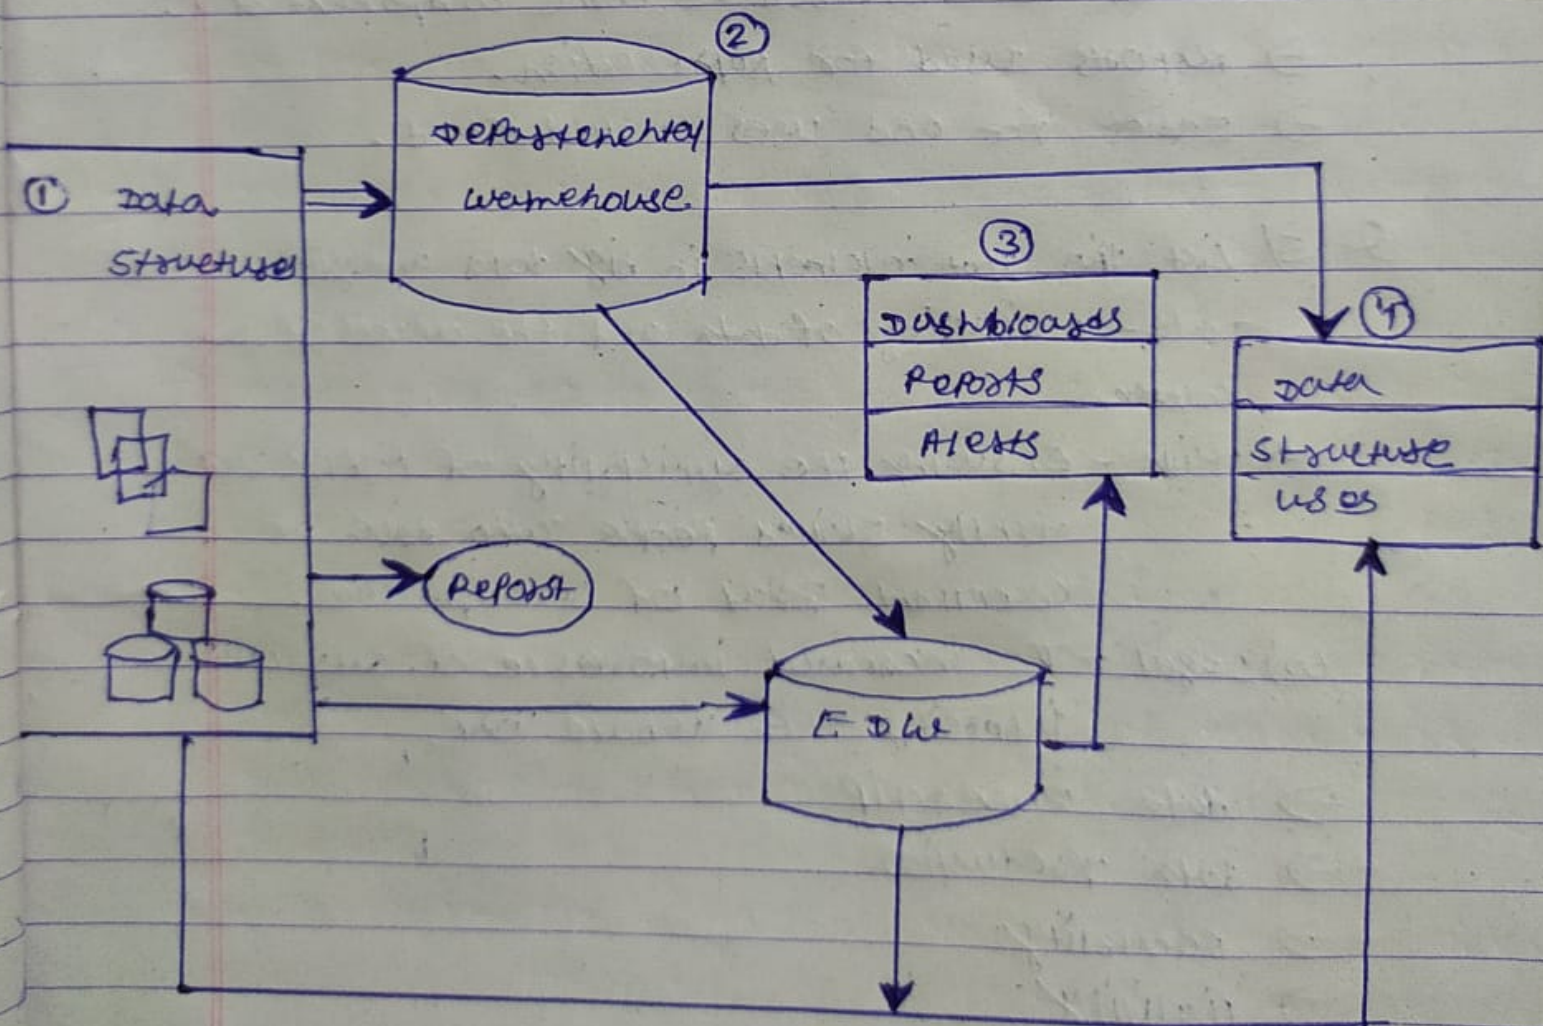 ②
Departmental
warehouse
① Data
Structures
③
Dashboards
Reports
Alerts
④
Data
Structure
uses
Report
EDW